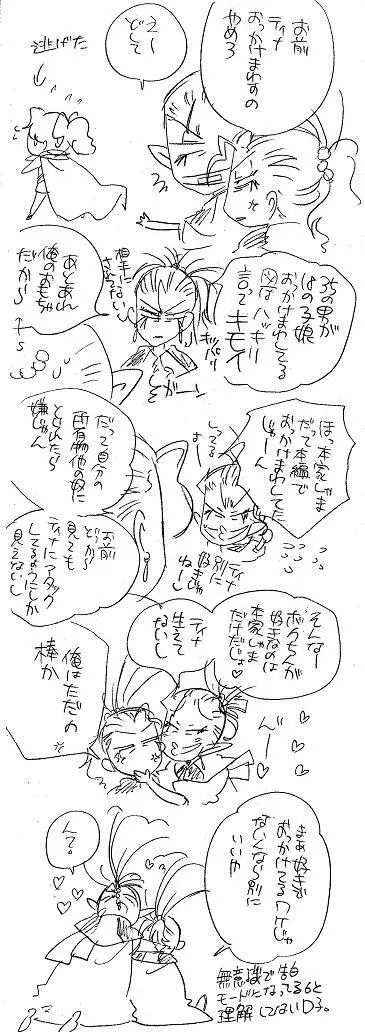 お前
ティナ
おっかけまわすの
やめろ
えー
どして
逃げた
35の男が
18の子娘
おっかけまわしてる
図はハッキリ
言ってキモイ
キッパリ
ガーン
相手にない
あとあれ
俺のおもちゃ
だから
ほっ本家しゃま
だって本編で
おっかけまわして
じゃーん
してる
よー
別に
ティナ
好きじ
ねーし
だって自分の
所有物他の奴に
とられたら
嫌じゃん
お前
どっから
見ても
ティナにアタック
してるようにしか
見えないし
そんなー
ボクちんが
好きなのは
本家しゃま
だけだじょ♡
ティナ
生えて
ないし
俺はただの
棒か
んー
まぁ好きで
おっかけてるワケじゃ
ないんなら別に
いいや
んで。
無意識で告白
モードになってる6と
理解してないD子。